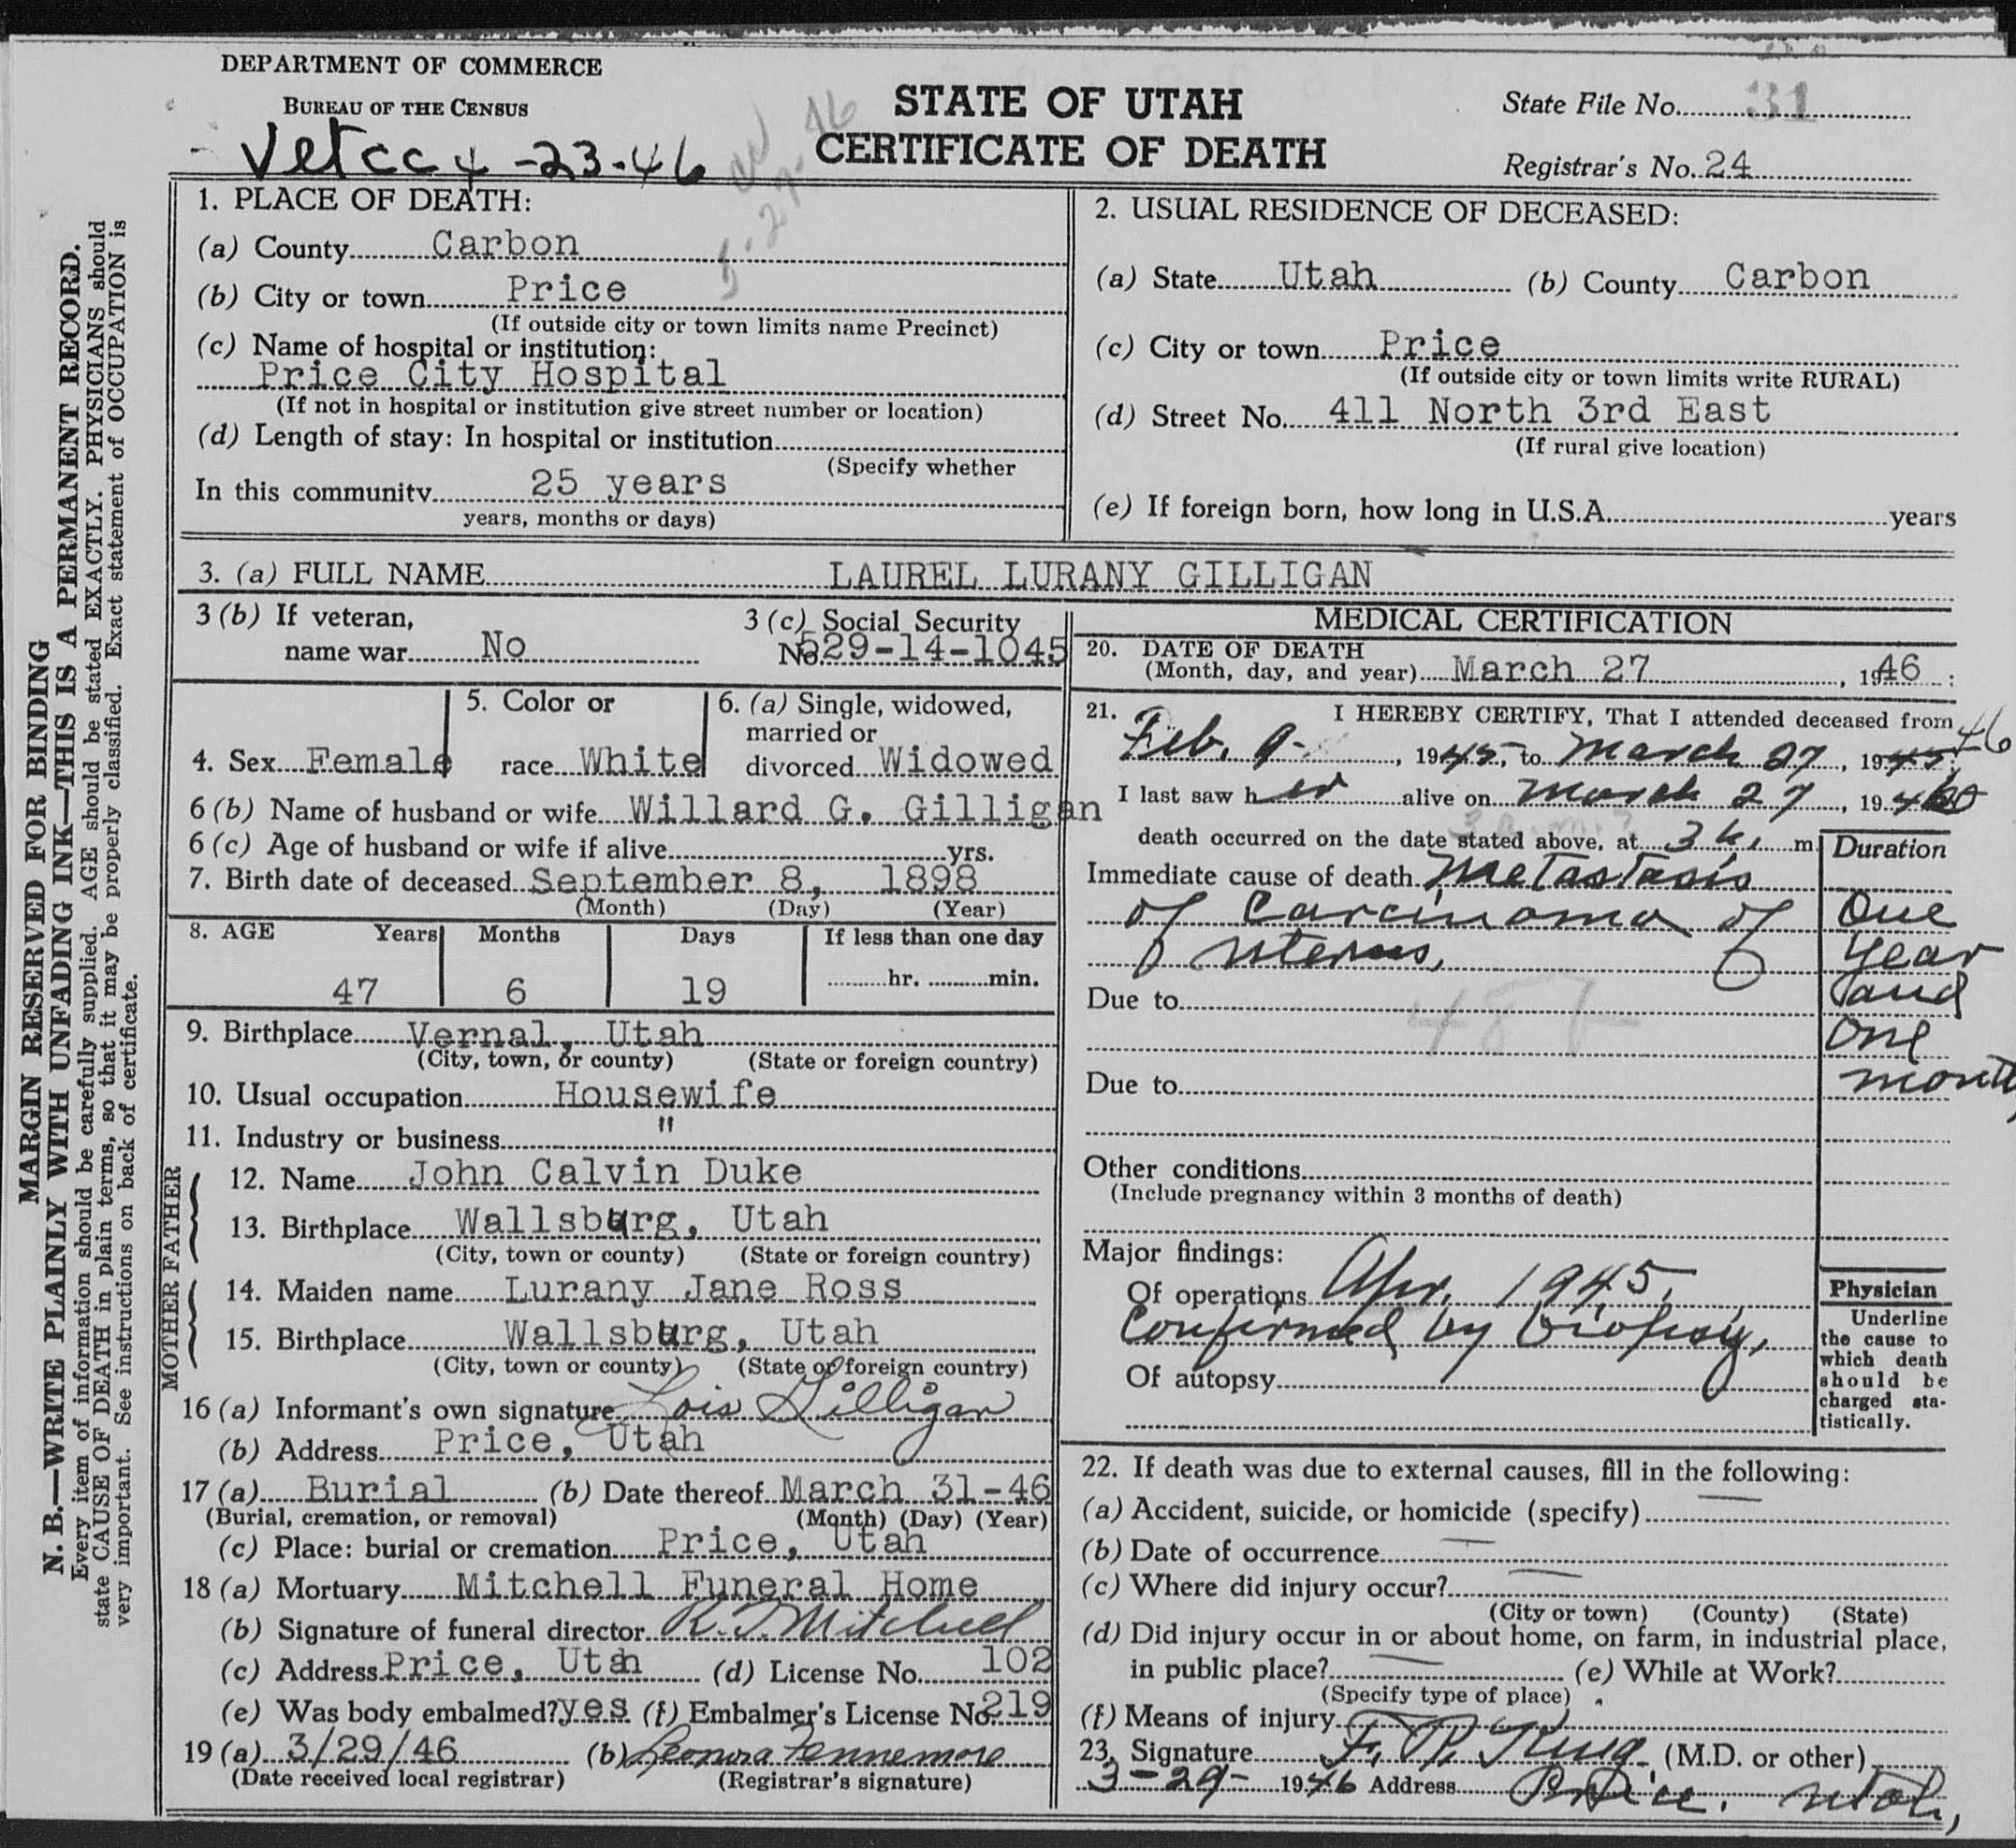 DEPARTMENT OF COMMERCE
BUREAU OF THE CENSUS
Vet cc 4-23-46
STATE OF UTAH
CERTIFICATE OF DEATH
State File No. 31
Registrar's No. 24
MARGIN RESERVED FOR BINDING
N. B.—WRITE PLAINLY WITH UNFADING INK—THIS IS A PERMANENT RECORD.
Every item of information should be carefully supplied. AGE should be stated EXACTLY. PHYSICIANS should
state CAUSE OF DEATH in plain terms, so that it may be properly classified. Exact statement of OCCUPATION is
very important. See instructions on back of certificate.
1. PLACE OF DEATH:
(a) County Carbon
(b) City or town Price
(If outside city or town limits name Precinct)
(c) Name of hospital or institution:
Price City Hospital
(If not in hospital or institution give street number or location)
(d) Length of stay: In hospital or institution
(Specify whether
In this community 25 years
years, months or days)
2. USUAL RESIDENCE OF DECEASED:
(a) State Utah (b) County Carbon
(c) City or town Price
(If outside city or town limits write RURAL)
(d) Street No. 411 North 3rd East
(If rural give location)
(e) If foreign born, how long in U.S.A. years
3. (a) FULL NAME LAUREL LURANY GILLIGAN
3 (b) If veteran,
name war No
3 (c) Social Security
No. 529-14-1045
4. Sex Female
5. Color or
race White
6. (a) Single, widowed,
married or
divorced Widowed
6 (b) Name of husband or wife Willard G. Gilligan
6 (c) Age of husband or wife if alive yrs.
7. Birth date of deceased September 8, 1898
(Month) (Day) (Year)
8. AGE Years Months Days If less than one day
47 6 19 hr. min.
9. Birthplace Vernal, Utah
(City, town, or county) (State or foreign country)
10. Usual occupation Housewife
11. Industry or business "
FATHER
12. Name John Calvin Duke
13. Birthplace Wallsburg, Utah
(City, town or county) (State or foreign country)
MOTHER
14. Maiden name Lurany Jane Ross
15. Birthplace Wallsburg, Utah
(City, town or county) (State or foreign country)
16 (a) Informant's own signature Lois Gilligan
(b) Address Price, Utah
17 (a) Burial (b) Date thereof March 31-46
(Burial, cremation, or removal) (Month) (Day) (Year)
(c) Place: burial or cremation Price, Utah
18 (a) Mortuary Mitchell Funeral Home
(b) Signature of funeral director R. J. Mitchell
(c) Address Price, Utah (d) License No. 102
(e) Was body embalmed? yes (f) Embalmer's License No. 219
19 (a) 3/29/46 (b) Leonora Fennemore
(Date received local registrar) (Registrar's signature)
MEDICAL CERTIFICATION
20. DATE OF DEATH
(Month, day, and year) March 27, 1946;
21. I HEREBY CERTIFY, That I attended deceased from
Feb. 9-, 1945, to March 27, 1945; 46
I last saw her alive on March 27, 1946
death occurred on the date stated above, at 3 a. m.
Duration
Immediate cause of death Metastasis
of Carcinoma of
uterus,
One
year
and
one
month
Due to
Due to
Other conditions
(Include pregnancy within 3 months of death)
Major findings:
Of operations Apr. 1945,
Confirmed by biopsy,
Of autopsy
Physician
Underline
the cause to
which death
should be
charged sta-
tistically.
22. If death was due to external causes, fill in the following:
(a) Accident, suicide, or homicide (specify) —
(b) Date of occurrence —
(c) Where did injury occur? —
(City or town) (County) (State)
(d) Did injury occur in or about home, on farm, in industrial place,
in public place? — (e) While at Work?
(Specify type of place)
(f) Means of injury
23. Signature F. R. King (M.D. or other)
3-29- 1946 Address Price, Utah,